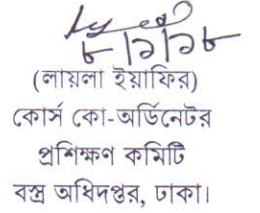 ৮/১/১৮
(লায়লা ইয়াফির)
কোর্স কো-অর্ডিনেটর
প্রশিক্ষণ কমিটি
বস্ত্র অধিদপ্তর, ঢাকা।